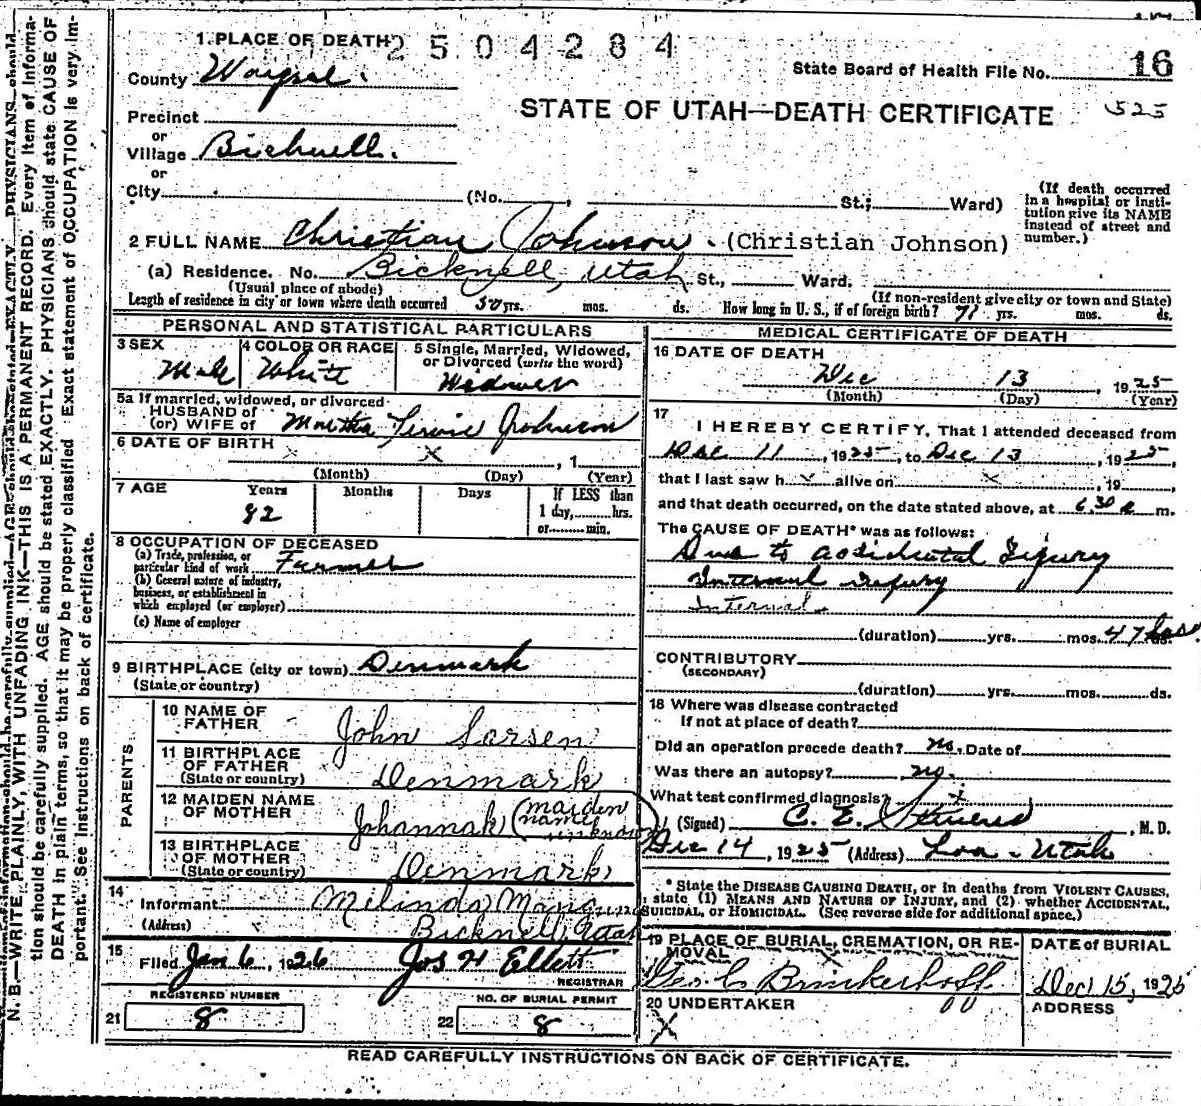 1. PLACE OF DEATH 2504284
County Wayne.
State Board of Health File No. 16
STATE OF UTAH—DEATH CERTIFICATE 525
Precinct
or
Village Bicknell.
or
City (No. , St.; Ward)
(If death occurred in a hospital or institution give its NAME instead of street and number.)
2 FULL NAME Christian Johnson. (Christian Johnson)
(a) Residence. No. Bicknell, Utah St., Ward.
(Usual place of abode) (If non-resident give city or town and State)
Length of residence in city or town where death occurred 50 yrs. mos. ds. How long in U. S., if of foreign birth? 71 yrs. mos. ds.
PERSONAL AND STATISTICAL PARTICULARS
3 SEX Male
4 COLOR OR RACE White
5 Single, Married, Widowed, or Divorced (write the word) Widower
5a If married, widowed, or divorced
HUSBAND of
(or) WIFE of Martha Johnson
6 DATE OF BIRTH x x , 1
(Month) (Day) (Year)
7 AGE Years Months Days If LESS than
82 1 day, hrs.
or min.
8 OCCUPATION OF DECEASED
(a) Trade, profession, or
particular kind of work Farmer
(b) General nature of industry,
business, or establishment in
which employed (or employer)
(c) Name of employer
9 BIRTHPLACE (city or town) Denmark
(State or country)
PARENTS
10 NAME OF FATHER John Larsen
11 BIRTHPLACE OF FATHER Denmark
(State or country)
12 MAIDEN NAME OF MOTHER Johannah (maiden name unknown)
13 BIRTHPLACE OF MOTHER Denmark
(State or country)
14
Informant Melinda Mangum
(Address) Bicknell, Utah
15
Filed Jan 6, 1926 Jos H Ellett
REGISTRAR
REGISTERED NUMBER NO. OF BURIAL PERMIT
21 8 22 8
MEDICAL CERTIFICATE OF DEATH
16 DATE OF DEATH
Dec 13 , 1925
(Month) (Day) (Year)
17
I HEREBY CERTIFY, That I attended deceased from
Dec 11 , 1925, to Dec 13 , 1925,
that I last saw h alive on x , 19 ,
and that death occurred, on the date stated above, at 6.30 a m.
The CAUSE OF DEATH* was as follows:
Due to accidental Injury
Internal injury
Internal
(duration) yrs. mos. 47 hrs.
CONTRIBUTORY
(SECONDARY)
(duration) yrs. mos. ds.
18 Where was disease contracted
If not at place of death?
Did an operation precede death? no. Date of
Was there an autopsy? no.
What test confirmed diagnosis? x
(Signed) C. E. , M. D.
Dec 14 , 1925 (Address) Loa - Utah
* State the DISEASE CAUSING DEATH, or in deaths from VIOLENT CAUSES,
state (1) MEANS AND NATURE OF INJURY, and (2) whether ACCIDENTAL,
SUICIDAL, OR HOMICIDAL. (See reverse side for additional space.)
19 PLACE OF BURIAL, CREMATION, OR REMOVAL DATE of BURIAL
Geo. C Brinkerhoff Dec 15, 1925
20 UNDERTAKER ADDRESS
X
READ CAREFULLY INSTRUCTIONS ON BACK OF CERTIFICATE.
N. B.—WRITE PLAINLY, WITH UNFADING INK—THIS IS A PERMANENT RECORD. Every item of information
should be carefully supplied. AGE should be stated EXACTLY. PHYSICIANS should state CAUSE OF
DEATH in plain terms, so that it may be properly classified. Exact statement of OCCUPATION is very important.
See instructions on back of certificate.